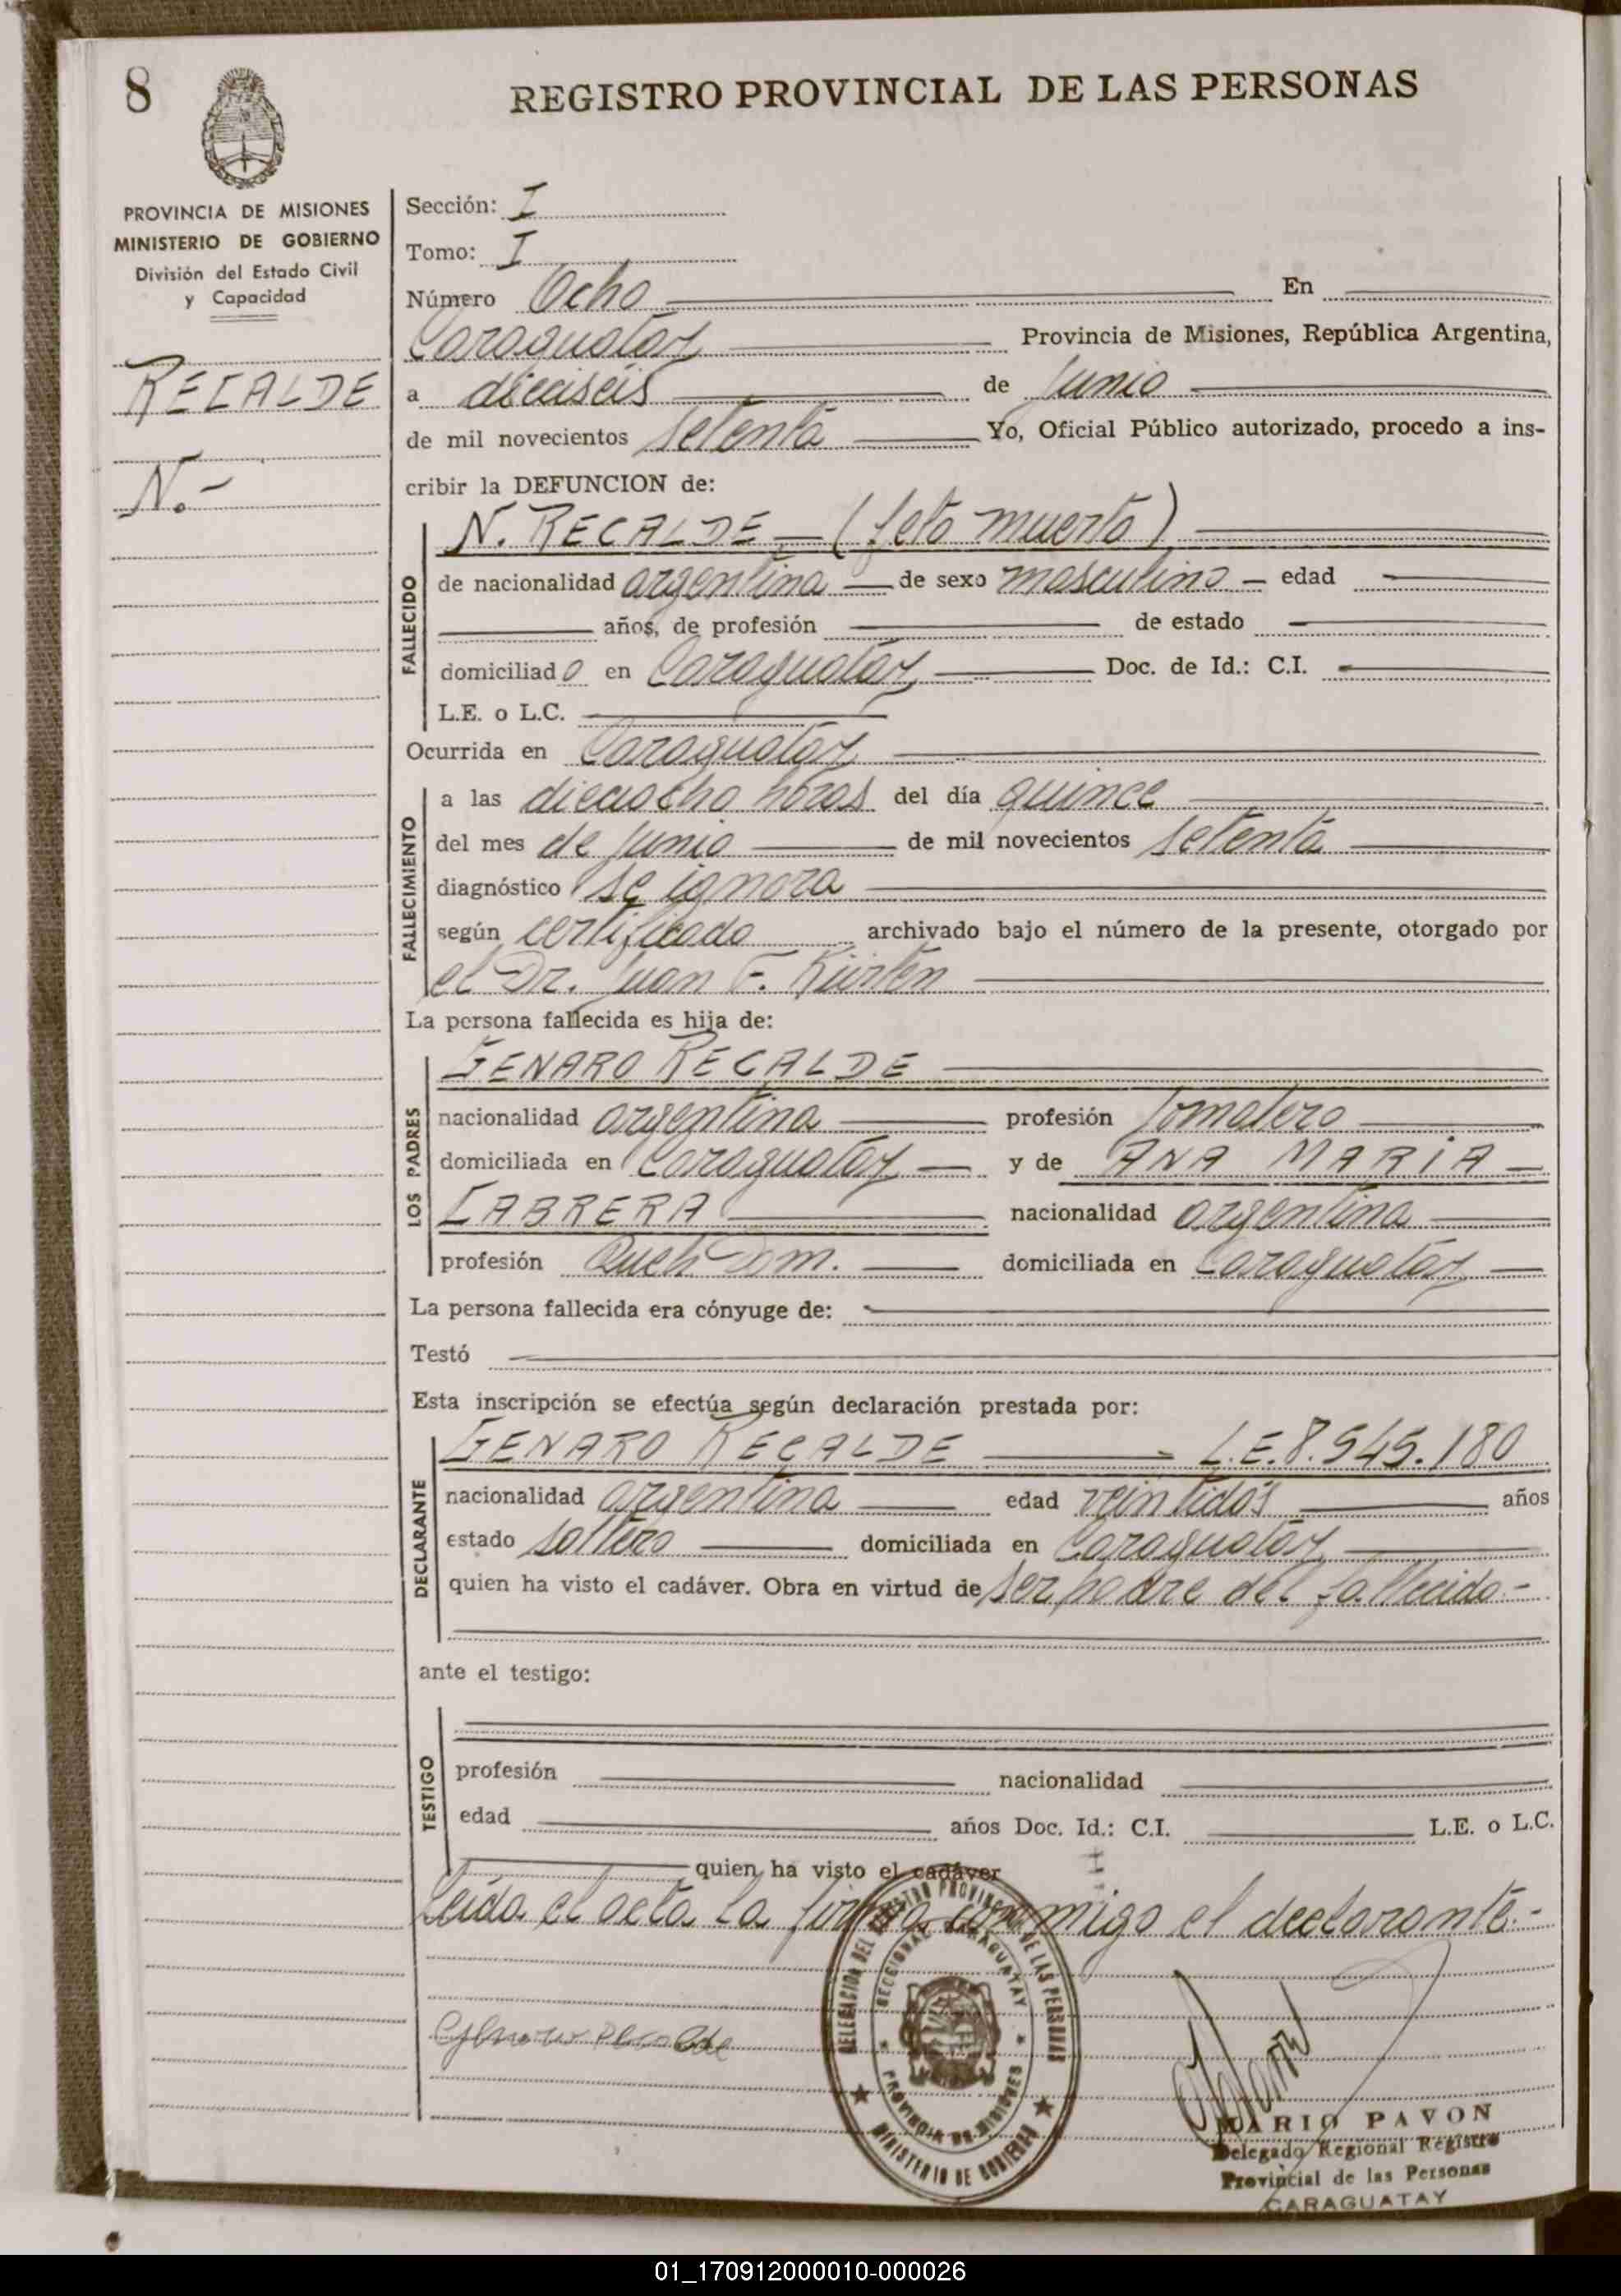 8
REGISTRO PROVINCIAL DE LAS PERSONAS
PROVINCIA DE MISIONES
MINISTERIO DE GOBIERNO
División del Estado Civil
y Capacidad
RECALDE
N.-
Sección: I
Tomo: I
Número Ocho En
Caraguatay Provincia de Misiones, República Argentina,
a dieciseis de junio
de mil novecientos setenta Yo, Oficial Público autorizado, procedo a ins-
cribir la DEFUNCION de:
FALLECIDO
N. RECALDE - (feto muerto)
de nacionalidad argentina de sexo masculino - edad
años, de profesión de estado
domiciliado en Caraguatay Doc. de Id.: C.I.
L.E. o L.C.
Ocurrida en Caraguatay
FALLECIMIENTO
a las dieciocho horas del día quince
del mes de junio de mil novecientos setenta
diagnóstico se ignora
según certificado archivado bajo el número de la presente, otorgado por
el Dr. Juan F. Kürten
La persona fallecida es hija de:
LOS PADRES
GENARO RECALDE
nacionalidad argentina profesión Tomatero
domiciliada en Caraguatay y de ANA MARIA
CABRERA nacionalidad argentina
profesión Queh Dom. domiciliada en Caraguatay
La persona fallecida era cónyuge de:
Testó
Esta inscripción se efectúa según declaración prestada por:
DECLARANTE
GENARO RECALDE L.E. 8.545.180
nacionalidad argentina edad veintidós años
estado soltero domiciliada en Caraguatay
quien ha visto el cadáver. Obra en virtud de ser padre del fallecido-
ante el testigo:
TESTIGO
profesión nacionalidad
edad años Doc. Id.: C.I. L.E. o L.C.
quien ha visto el cadáver
Leida el acta la firma conmigo el declarante.-
DELEGACION DEL REGISTRO PROVINCIAL DE LAS PERSONAS
SECCIONAL CARAGUATAY
PROVINCIA DE MISIONES
MINISTERIO DE GOBIERNO
Genaro Recalde
MARIO PAVON
Delegado Regional Registro
Provincial de las Personas
CARAGUATAY
01_170912000010-000026